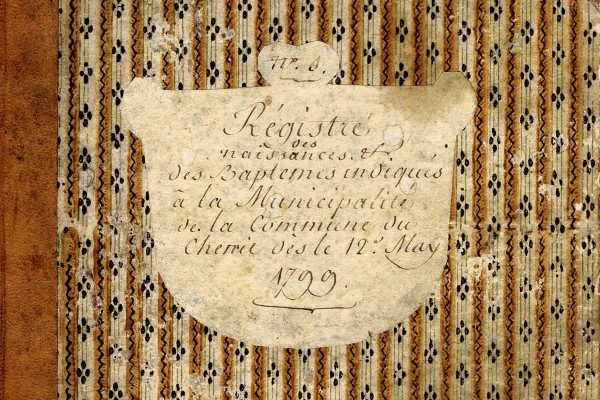 N.º 8.
Régistré
des
naissances et
des Baptemes indiqués
à la Municipalité
de la Commune du
Chenit dès le 12.e May
1799.